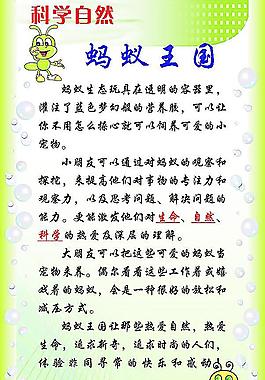 科学自然
蚂蚁王国
蚂蚁生态玩具在透明的容器里，
灌注了蓝色梦幻般的营养胶，可以让
你不用怎么操心就可以饲养可爱的小
宠物。
小朋友可以通过对蚂蚁的观察和
探挖，来提高他们对事物的专注力和
观察力，以及思考问题、解决问题的
能力。更能激发他们对生命、自然、
科学的热爱及深层的理解。
大朋友可以把这些可爱的蚂蚁当
宠物来养。偶尔看着这些工作着或嬉
戏着的蚂蚁，会是一种很好的放松和
减压方式。
蚂蚁王国让那些热爱自然，热爱
生命，追求新奇，追求时尚的人们，
体验非同寻常的快乐和感动。